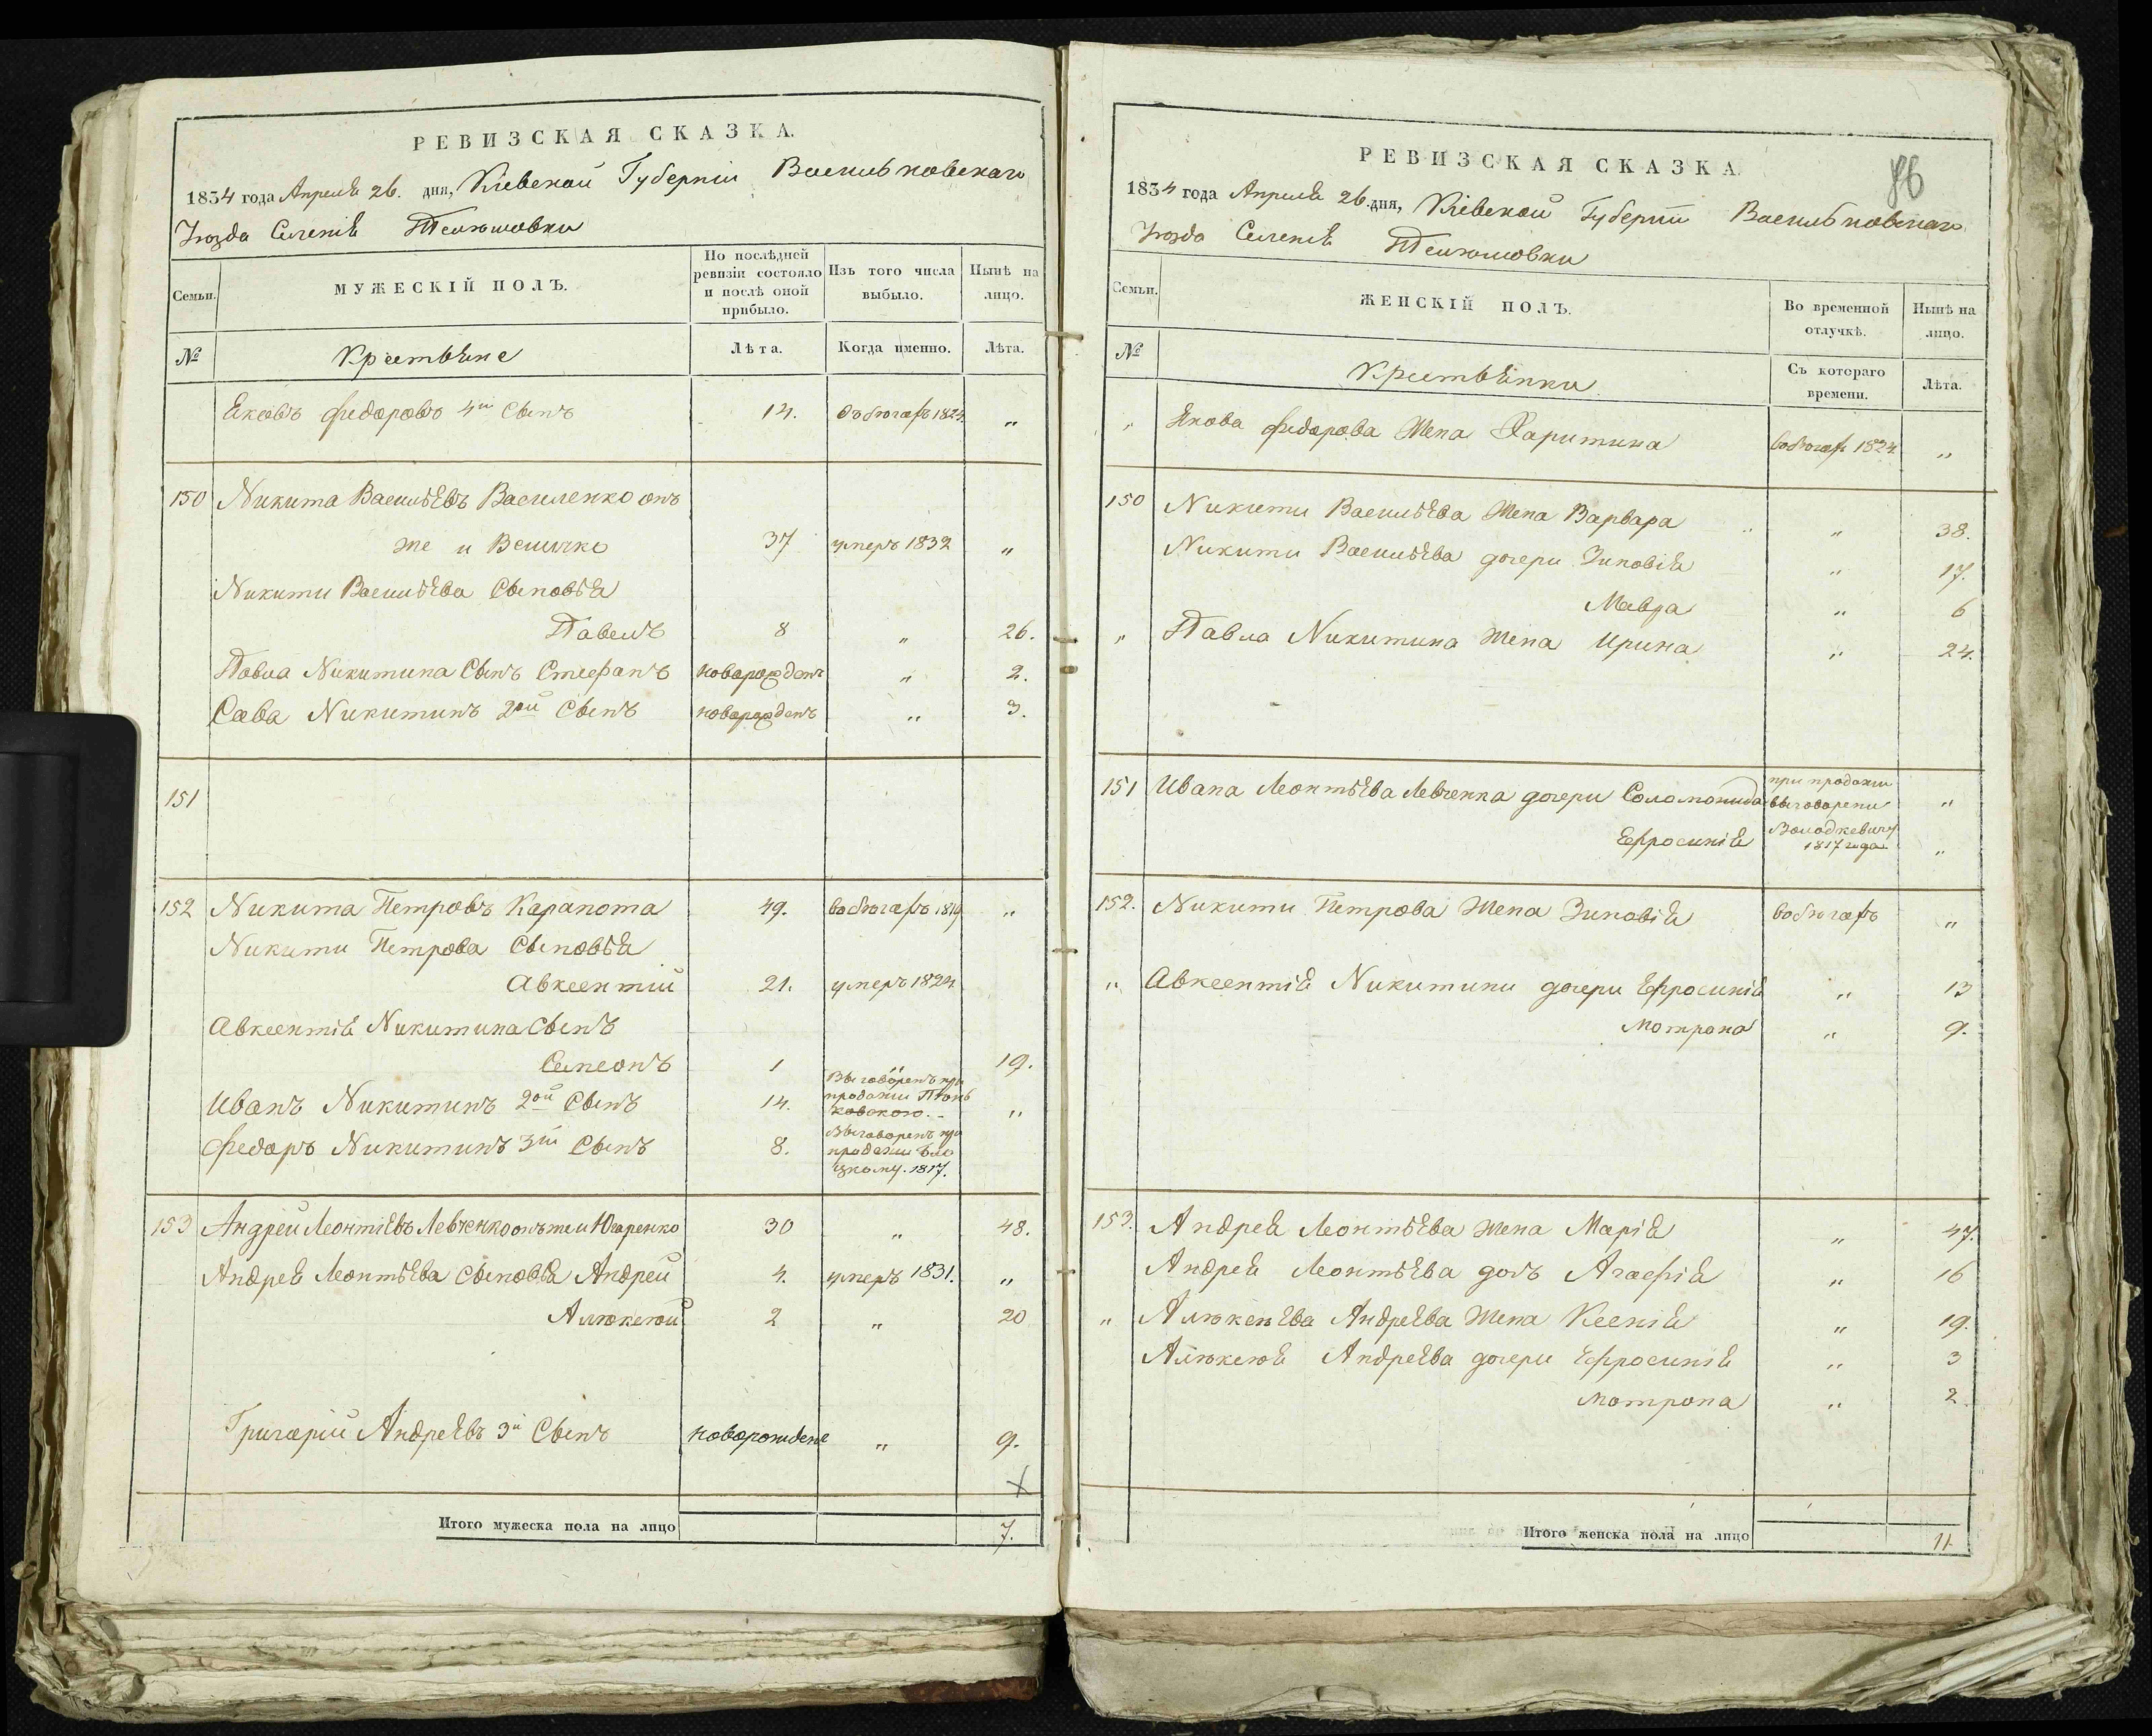 РЕВИЗСКАЯ СКАЗКА.
1834 года Апреля 26. дня, Кіевской Губерніи Васильковскаго
Уезда Селенія
Семьи.
МУЖЕСКІЙ ПОЛЪ.
По послѣдней ревизіи состояло и послѣ оной прибыло.
Изъ того числа выбыло.
Нынѣ на лицо.
№
Крестьяне
Лѣта.
Когда именно.
Лѣта.
Яковъ Федоровъ 4й Сынъ 14. 1824 "
150 Никита Васильевъ Василенко онъ
же и Величко 37 умеръ 1832 "
Никити Васильева Сыновья
Павелъ 8 " 26.
Павла Никитина Сынъ Стефанъ новорожденъ " 2.
Сава Никитинъ 2ой Сынъ новорожденъ " 3.
151
152 Никита Петровъ Карапота 49. 1819 "
Никити Петрова Сыновья
Авксентий 21. умеръ 1824
Авксентія Никитина Сынъ
Симеонъ 1 " 19.
Иванъ Никитинъ 2ой Сынъ 14. Выговоренъ при продажи "
Федоръ Никитинъ 3й Сынъ 8. Выговоренъ при продажи 1817.
153 Андрей Леонтіевъ Левченко онъ же и 30 " 48.
Андрея Леонтьева Сыновья Андрей 4. умеръ 1831. "
Алюксюй 2 " 20
Григорій Андреявъ 3й Сынъ новорожденъ " 9.
Итого мужеска пола на лицо 7.
86
РЕВИЗСКАЯ СКАЗКА.
1834 года Апреля 26. дня, Кіевской Губерніи Васильковскаго
Уезда Селенія
Семьи.
ЖЕНСКІЙ ПОЛЪ.
Во временной отлучкѣ.
Нынѣ на лицо.
№
Крестьянки
Съ котораго времени.
Лѣта.
" Якова Федорова Жена Харитина 1824 "
150 Никити Васильева Жена Варвара " 38.
Никити Васильева дочери Зиновія " 17.
Мавра " 6
" Павла Никитина Жена Ирина " 24.
151 Ивана Леонтьева Левченка дочери Соломонида при продажи выговорени "
Ефросинія Володкевичу 1817 года "
152. Никити Петрова Жена Зиновія "
" Авксентія Никитини дочери Ефросинія " 13
Мотрона " 9.
153. Андрея Леонтьева Жена Марія " 47.
Андрея Леонтьева дочь Агафія " 16
" Алюксюява Андреява Жена Ксенія " 19.
Алюксюя Андреява дочери Ефросинія " 3
Мотрона " 2.
Итого женска пола на лицо 11.